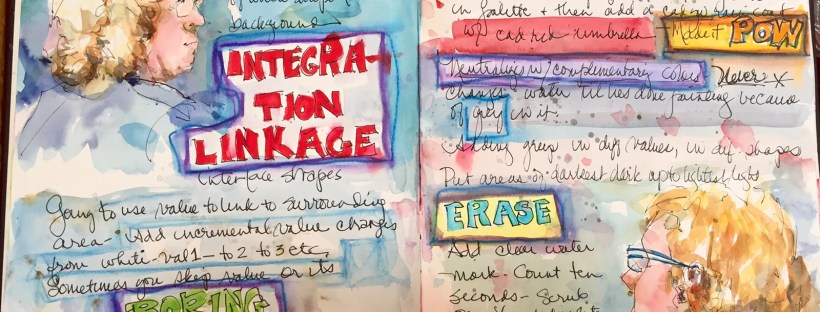 background
INTEGRA-
TION
LINKAGE
interface shapes
Going to use value to link to surrounding
area - Add incremental value changes
from white - val 1 - to 2 to 3 etc.
Sometimes you skip value or its
BORING
in palette + then add a
w/ cad red umbrella - Make it POW
Neutralizing w/ complimentary colors Never
changes water til hes done painting because
of grey in it.
Adding grey in diff values, in dif. shapes
Put areas of darkest dark up to lightest lights
ERASE
Add clear water
mark - Count ten
seconds - Scrub